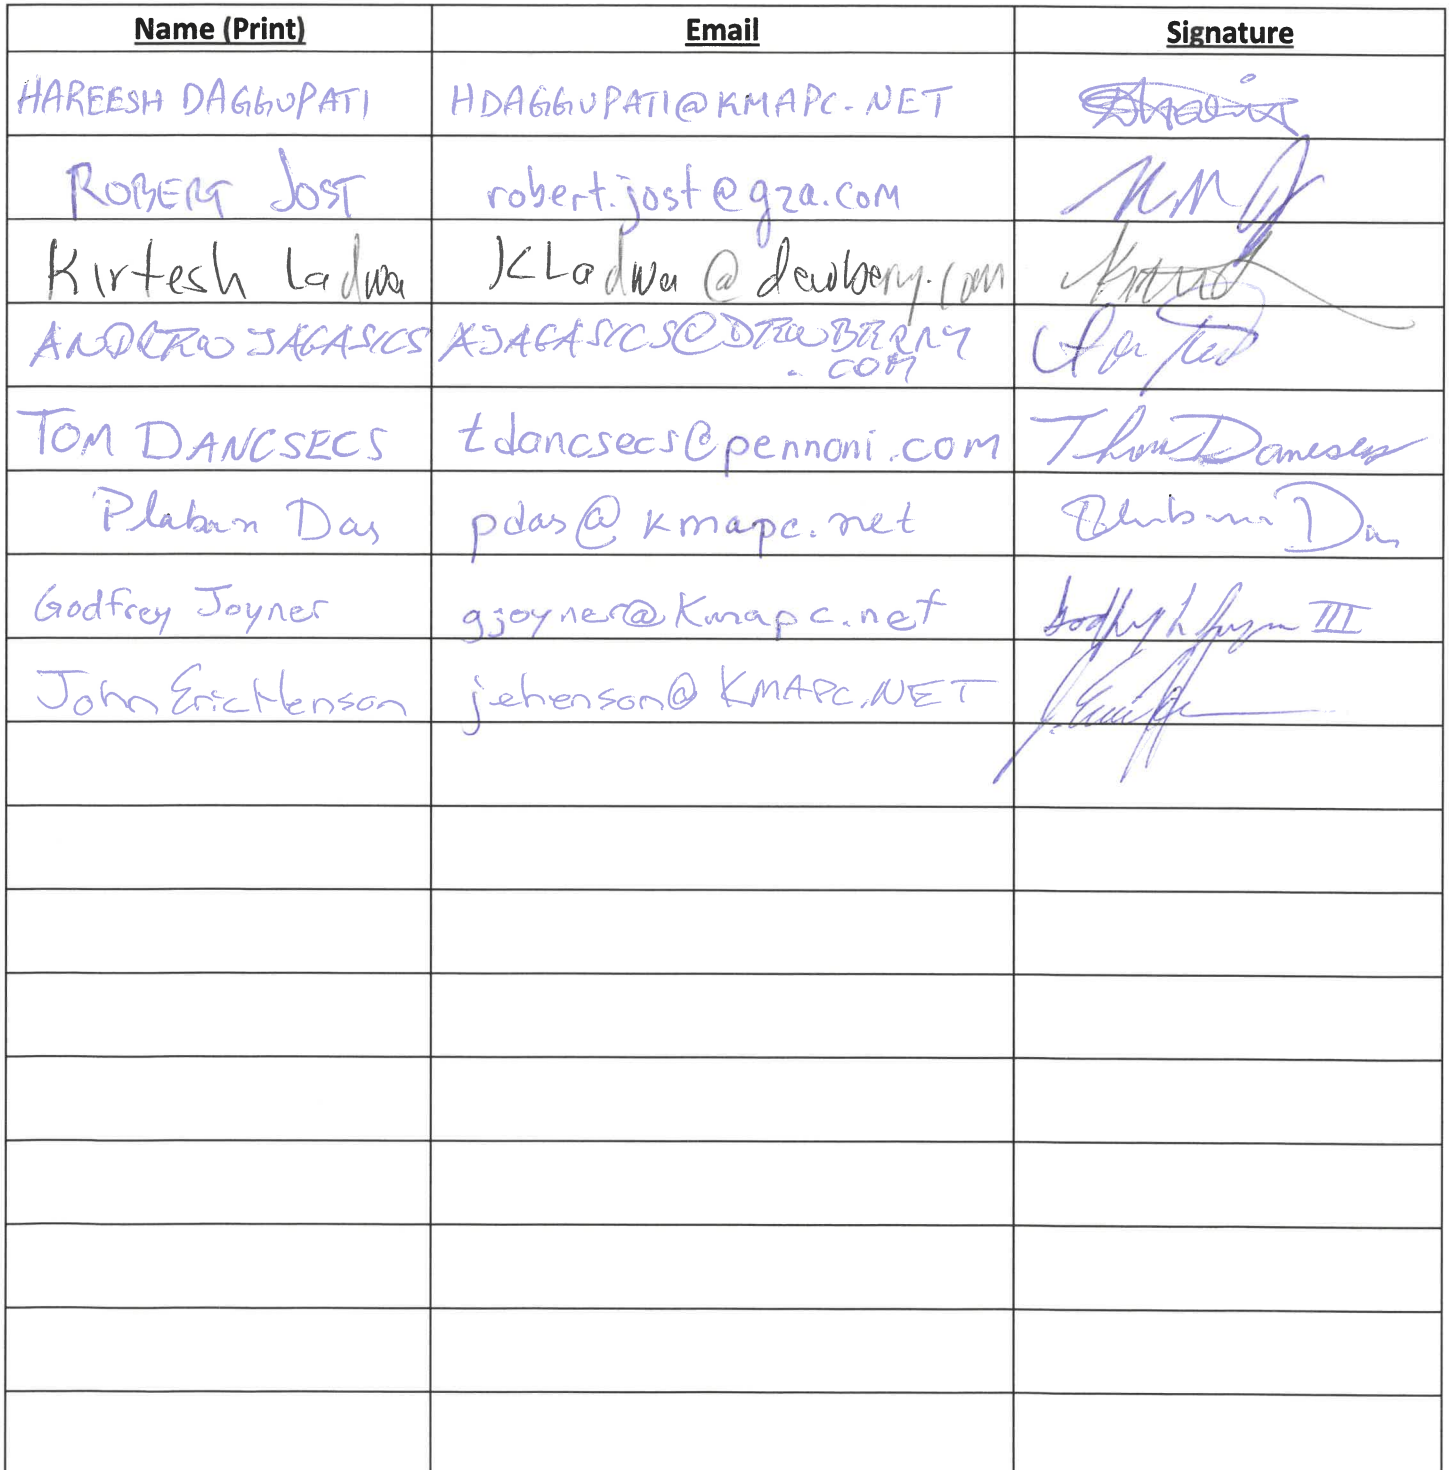 Name (Print) Email Signature
HAREESH DAGGUPATI HDAGGUPATI@KMAPC.NET
ROBERT JOST robert.jost@gza.com
Kirtesh Ladwa KLadwa@dewberry.com
ANDREW JAGASICS AJAGASICS@DEWBERRY
.COM
TOM DANCSECS tdancsecs@pennoni.com Thom Dancsecs
Plaban Das pdas@kmapc.net Das
Godfrey Joyner gjoyner@Kmapc.net Godfrey L Joyner III
John Eric Henson jehenson@KMAPC.NET